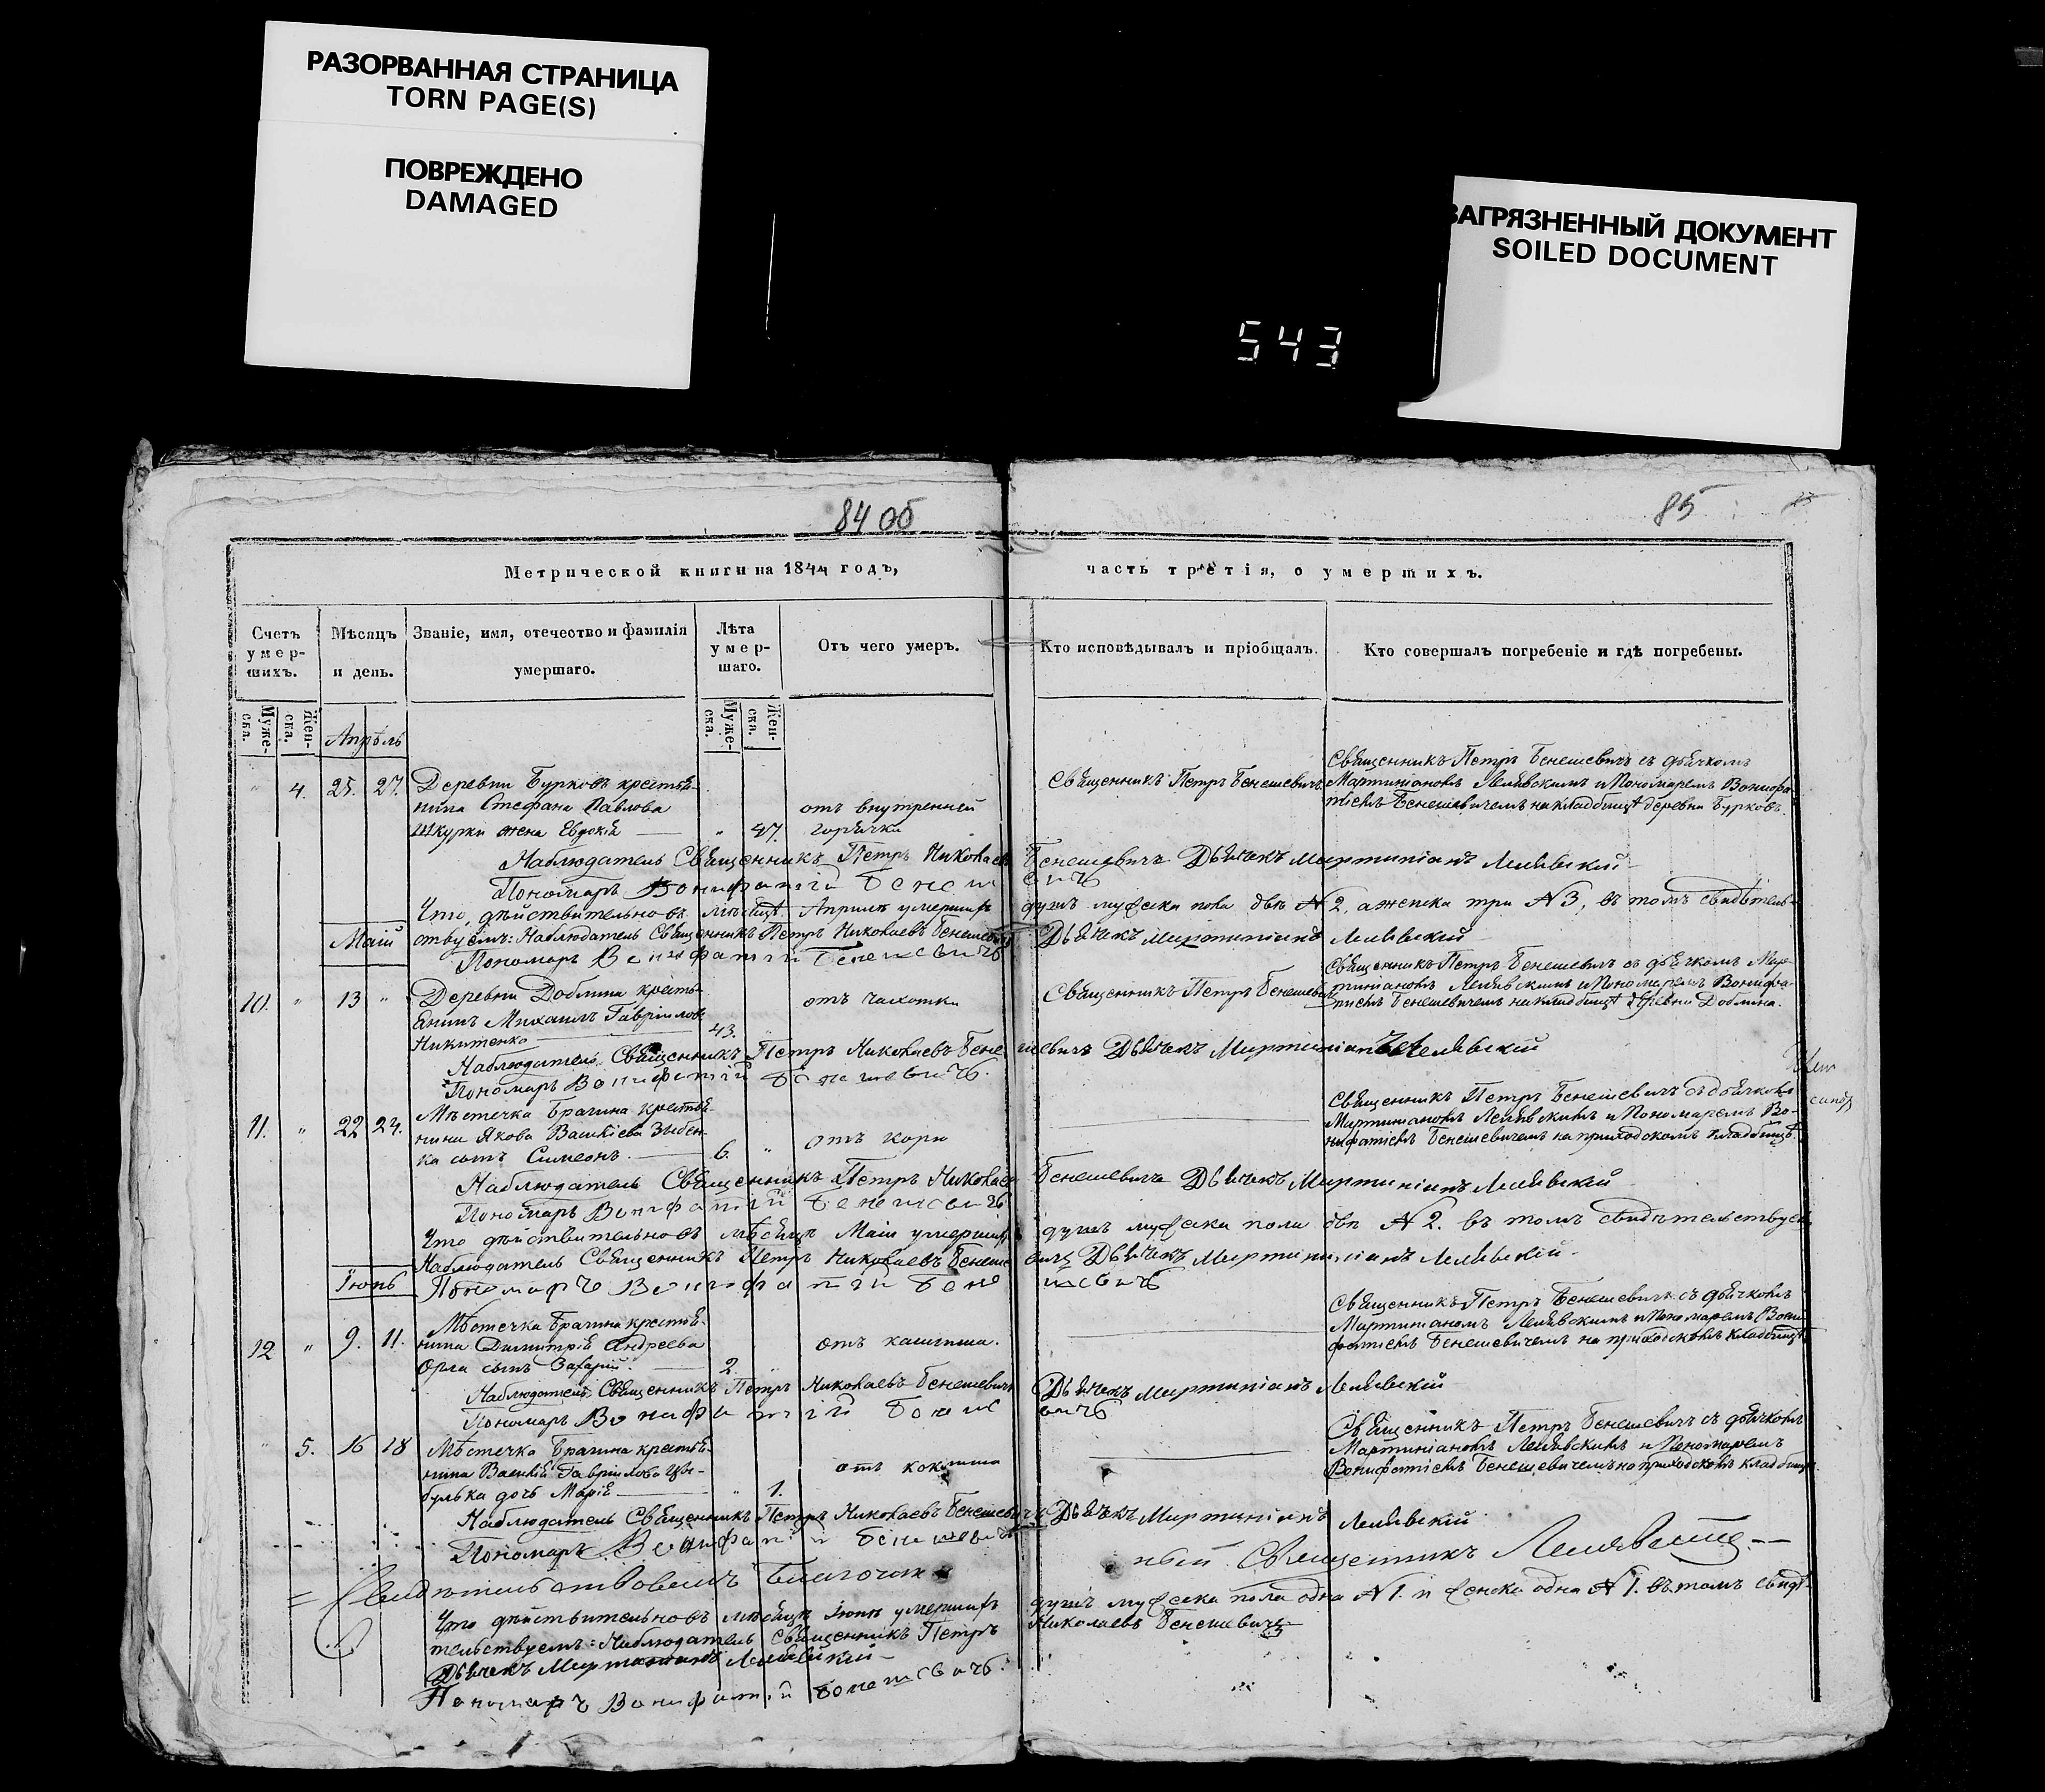 РАЗОРВАННАЯ СТРАНИЦА
TORN PAGE(S)
ПОВРЕЖДЕНО
DAMAGED
ЗАГРЯЗНЕННЫЙ ДОКУМЕНТ
SOILED DOCUMENT
543
84 об
85
Метрической книги на 1844 годъ,
часть третія, о умершихъ.
Счетъ умер-шихъ.
Мѣсяцъ и день.
Званіе, имя, отечество и фамилія умершаго.
Лѣта умер-шаго.
Отъ чего умеръ.
Кто исповѣдывалъ и пріобщалъ.
Кто совершалъ погребеніе и гдѣ погребены.
Муже-ска.
Жен-ска.
Муже-ска.
Жен-ска.
Апрѣль
" 4. 25. 27.
Деревни Бурковъ крестья-
нина Стефана Павлова
Шкурки жена Евдокія " 47.
отъ внутренней
горячки
Священникъ Петръ Бенешевичъ
Священникъ Петръ Бенешевичъ съ дьячкомъ
Мартиніаномъ Лелявскимъ и Пономаремъ Вонифа-
тіемъ Бенешевичемъ на кладбищѣ деревни Бурковъ.
Наблюдатель Священникъ Петръ Николаевъ Бенешевичъ Дьячекъ Мартиніанъ Лелявскій
Пономарь Вонифатій Бенешевичъ
Что дѣйствительно въ мѣсяцѣ Априлѣ умершихъ душъ мужеска пола двѣ N 2, а женска три N 3, въ томъ свидѣтель-
ствуемъ: Наблюдатель Священникъ Петръ Николаевъ Бенешевичъ Дьячекъ Мартиніанъ Лелявскій
Маій
Пономарь Вонифатій Бенешевичъ
10. " 13 "
Деревни Доблина кресть-
янинъ Михаилъ Гавріиловъ
Никитенко 43. "
отъ чахотки
Священникъ Петръ Бенешевичъ
Священникъ Петръ Бенешевичъ съ дьячкомъ Мар-
тиніаномъ Лелявскимъ и Пономаремъ Вонифа-
тіемъ Бенешевичемъ на кладбищѣ деревни Доблина.
Наблюдатель Священникъ Петръ Николаевъ Бенешевичъ Дьячекъ Мартиніанъ Лелявскій
Пономарь Вонифатій Бенешевичъ.
11. " 22 24.
Мѣстечка Брагина крестья-
нина Якова
сынъ Симеонъ. 6. "
отъ кори
Священникъ Петръ Бенешевичъ съ дьячкомъ
Мартиніаномъ Лелявскимъ и Пономаремъ Во-
нифатіемъ Бенешевичемъ на приходскомъ кладбищѣ.
Наблюдатель Священникъ Петръ Николаевъ Бенешевичъ Дьячекъ Мартиніанъ Лелявскій
Пономарь Вонифатій Бенешевичъ
Что дѣйствительно въ мѣсяцѣ Маіи умершихъ душъ мужеска пола двѣ N 2. въ томъ свидѣтельствуемъ
Наблюдатель Священникъ Петръ Николаевъ Бенешевичъ Дьячекъ Мартиніанъ Лелявскій.
Іюнь
Пономарь Вонифатій Бенешевичъ
12 " 9. 11.
Мѣстечка Брагина крестья-
нина Димитрія Андреева
Орла сынъ Захарій. 2. "
отъ кашлюша.
Священникъ Петръ Бенешевичъ съ дьячкомъ
Мартиніаномъ Лелявскимъ и Пономаремъ Вони-
фатіемъ Бенешевичемъ на приходскомъ кладбищѣ
Наблюдатель Священникъ Петръ Николаевъ Бенешевичъ Дьячекъ Мартиніанъ Лелявскій
Пономарь Вонифатій Бенешевичъ
" 5. 16 18
Мѣстечка Брагина крестья-
нина Гавріилова
дочь Марія " 1.
отъ коклюша
Священникъ Петръ Бенешевичъ съ дьячкомъ
Мартиніаномъ Лелявскимъ и Пономаремъ
Вонифатіемъ Бенешевичемъ на приходскомъ кладбищѣ.
Наблюдатель Священникъ Петръ Николаевъ Бенешевичъ Дьячекъ Мартиніанъ Лелявскій
Пономарь Вонифатій Бенешевичъ
Священникъ
Что дѣйствительно въ мѣсяцѣ Іюнѣ умершихъ душъ мужеска пола одна N 1. и женска одна N 1. въ томъ свидѣ-
тельствуемъ: Наблюдатель Священникъ Петръ Николаевъ Бенешевичъ
Дьячекъ Мартиніанъ Лелявскій
Пономарь Вонифатій Бенешевичъ.